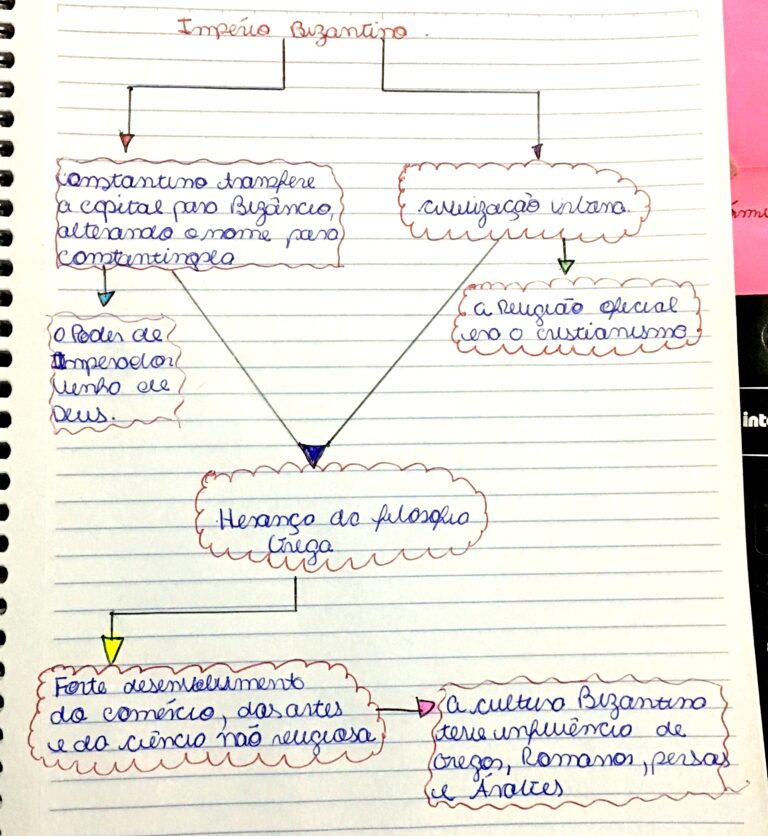 Império Bizantino.
Constantino transfere
a capital para Bizâncio,
alterando o nome para
constantinopla
civilização urbana.
O Poder de
Imperador
vinha de
Deus.
a Religião oficial
era o cristianismo
Herança da filosofia
Grega
Forte desenvolvimento
do comércio, das artes
e da ciência não religiosa
a cultura Bizantina
teve influência de
Gregos, Romanos, persas
e Árabes
inte